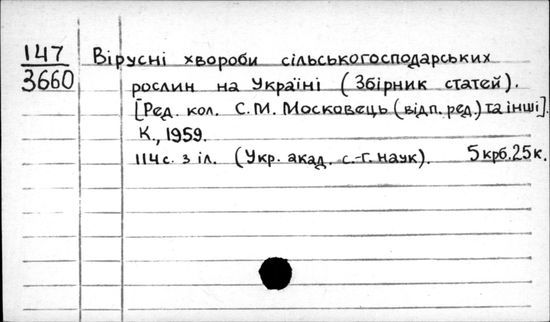 147
3660
Вірусні хвороби сільськогосподарських
рослин на Україні (Збірник статей).
[Ред. кол. С.М. Московець (відп. ред.) та інші].
К., 1959.
114 с. з іл. (Укр. акад. с.-г. наук). 5 крб. 25 к.